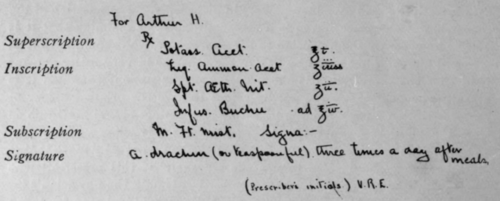 For Arthur H.
Superscription ℞
Potass. Acet
Inscription Liq. Ammon. Acet
Spt. Æth. Nit. ʒii.
Infus. Buchu ad
Subscription M. Ft. mist. Signa:-
Signature a. drachm (or teaspoonful) three times a day after
meals.
(Prescriber's initials) V.R.E.